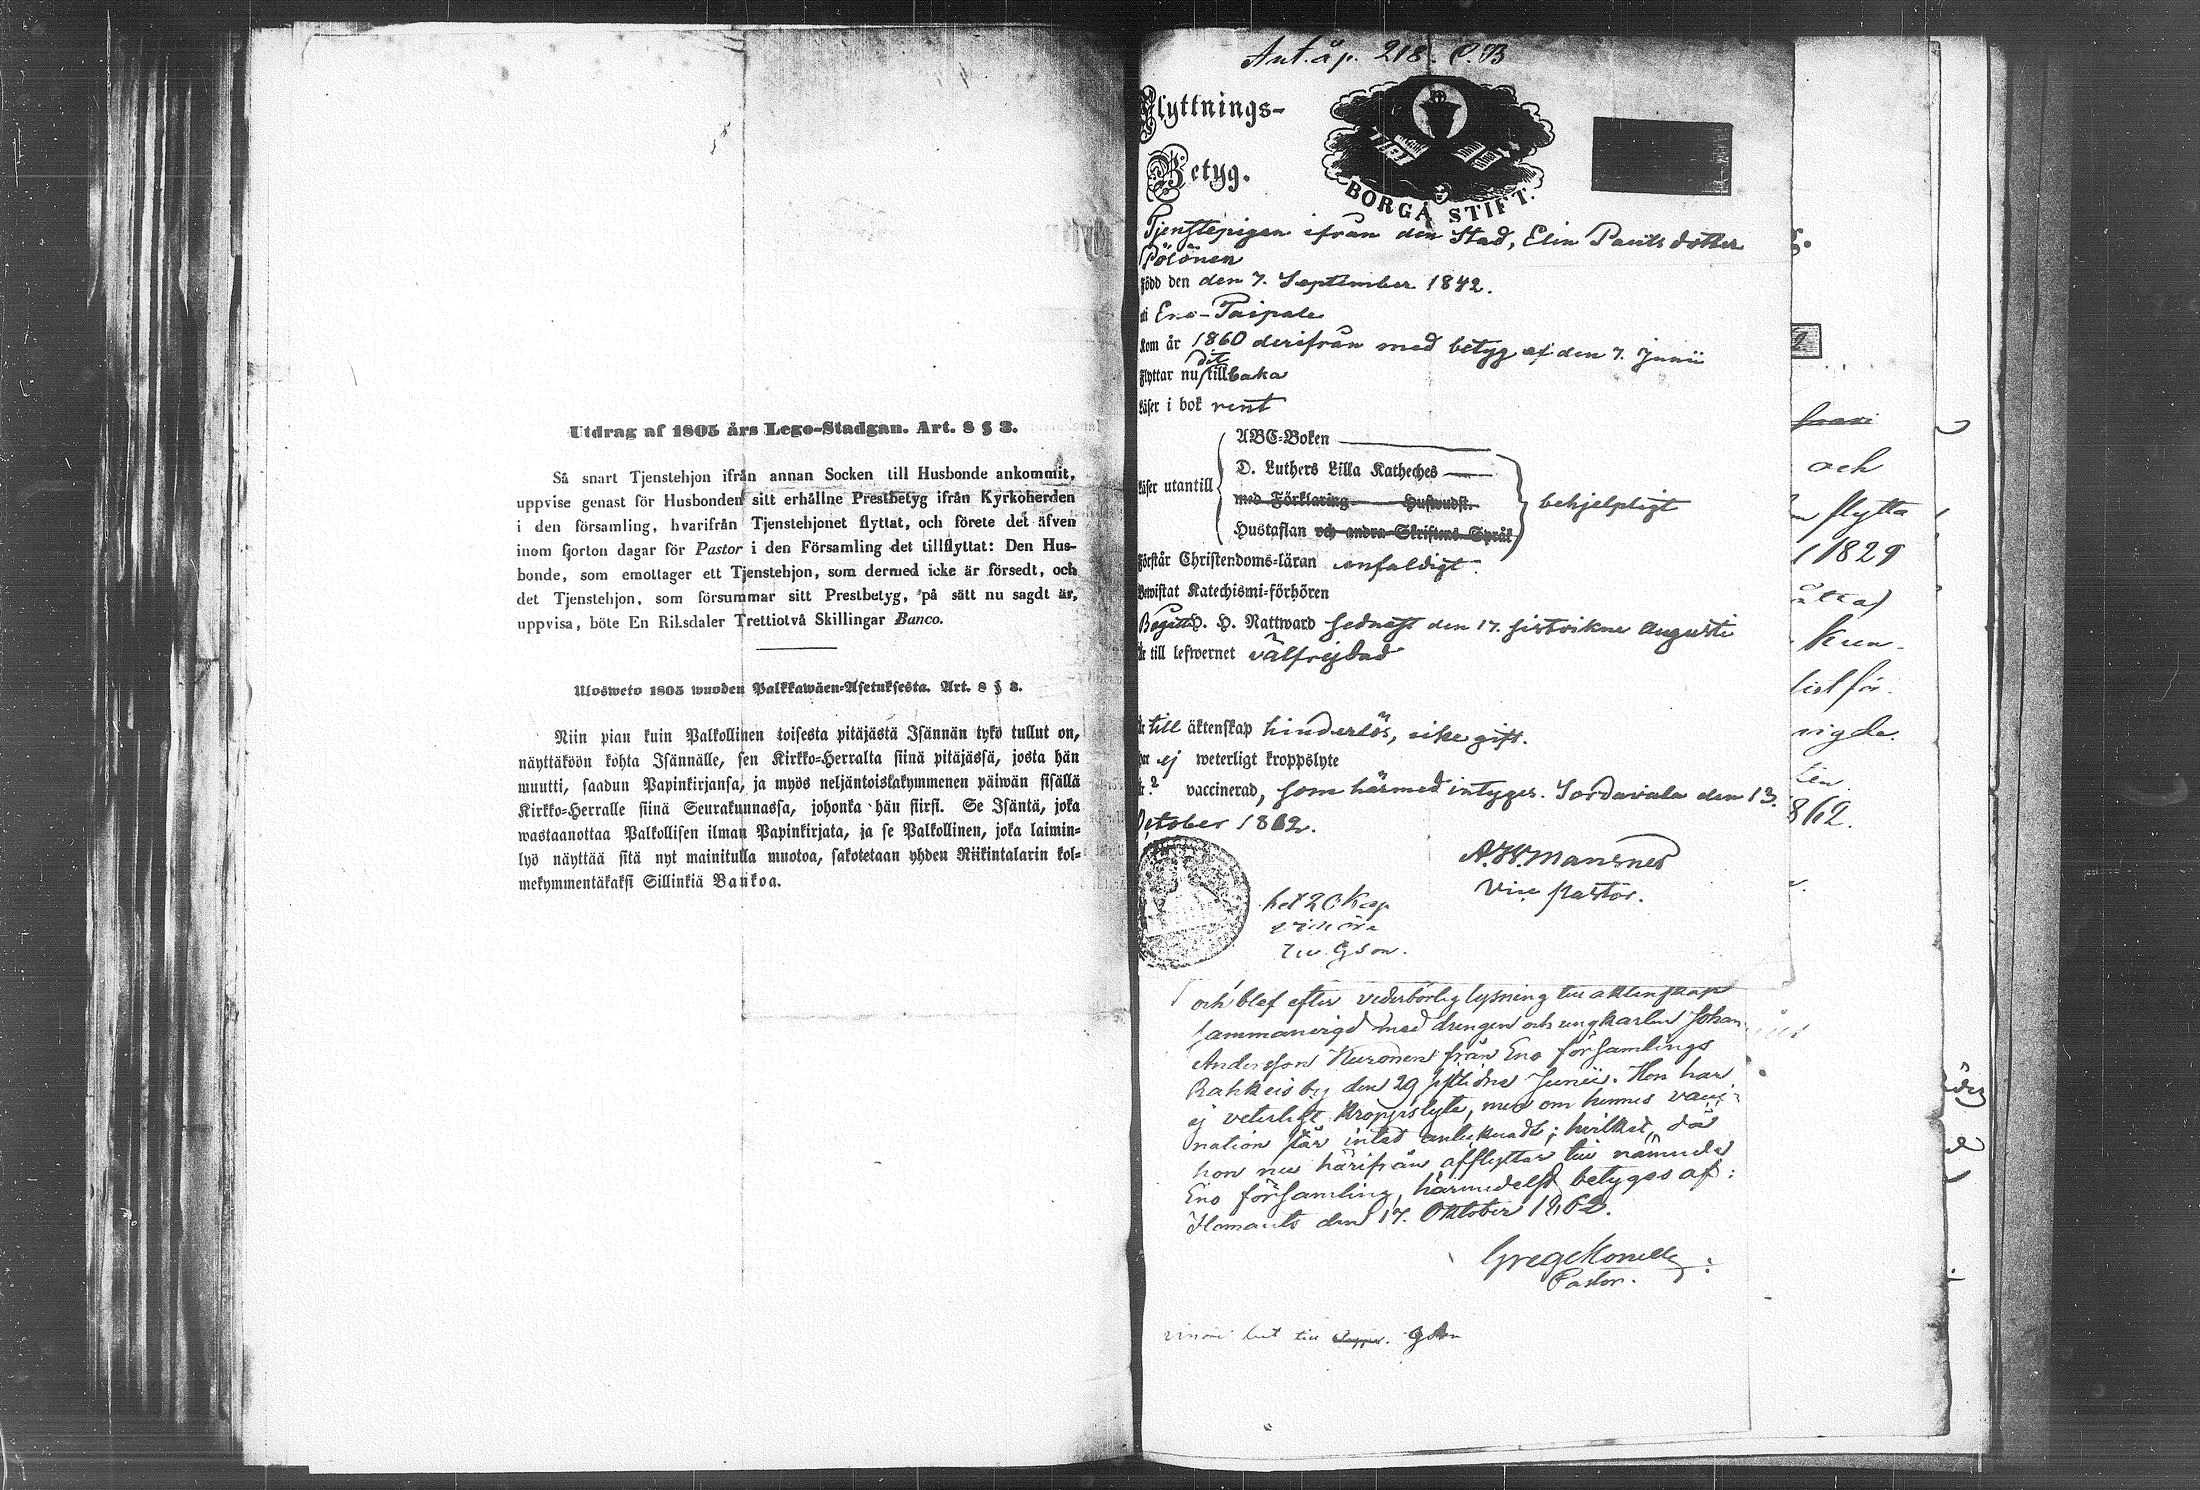 Utdrag af 1805 års Lego-Stadgan. Art. 8 § 3.
Så snart Tjenstehjon ifrån annan Socken till Husbonde ankommit,
uppvise genast för Husbonden sitt erhållne Prestbetyg ifrån Kyrkoherden
i den församling, hvarifrån Tjenstehjonet flyttat, och förete det äfven
inom fjorton dagar för Pastor i den Församling det tillflyttat: Den Hus-
bonde, som emottager ett Tjenstehjon, som dermed icke är försedt, och
det Tjenstehjon, som försummar sitt Prestbetyg, på sätt nu sagdt är,
uppvisa, böte En Riksdaler Trettiotvå Skillingar Banco.
Ulosweto 1805 wuoden Palkkawäen-Asetuksesta. Art. 8 § 3.
Niin pian kuin Palkollinen toisesta pitäjästä Isännän tykö tullut on,
näyttäköön kohta Isännälle, sen Kirkko-Herralta siinä pitäjässä, josta hän
muutti, saadun Papinkirjansa, ja myös neljäntoistakymmenen päiwän sisällä
Kirkko-Herralle siinä Seurakunnassa, johonka hän siirsi. Se Isäntä, joka
wastaanottaa Palkollisen ilman Papinkirjata, ja se Palkollinen, joka laimin-
lyö näyttää sitä nyt mainitulla muotoa, sakotetaan yhden Riikintalarin kol-
mekymmentäkaksi Sillinkiä Bankoa.
Ant. å p. 218. C.B
Flyttnings-
Betyg.
BORGÅ STIFT.
Tjenstepigan ifrån den Stad, Elin Paulsdotter
Pölönen
född den den 7. September 1842.
i Eno-Paipale
Kom år 1860 derifrån med betyg af den 7. Junii
Flyttar nu dit tillbaka
Läser i bok rent
ABC-Boken
D. Luthers Lilla Katheches
Läser utantill
med Förklaring Huswudst.
behjelpligt
Hustaflan och andra Skriftens Språk
Förstår Christendoms-läran enfaldigt.
Bewistat Katechismi-förhören
Begått H. H. Nattward sednast den 17. sistvikne Augusti
Är till lefwernet välfrejdad
Är till äktenskap hinderlös, icke gift.
Har ej weterligt kroppslyte
Är ? vaccinerad, som härmed intygar. Sordavala den 13.
October 1862.
A.W. Mansner
Vice pastor.
20 Kop
och blef efter vederbörlig lysning till äktenskap
sammanvigd med drengen och ungkarlen Johan
Andersson Kuronen från Eno församlings
Rahkeis by den 29 sistlidne Junii. Hon har
ej veterligt kroppslyte, men om hennes vacci-
nation står intet antecknadt; hvilket, då
hon nu härifrån afflyttar till nämnde
Eno församling, härmedelst betygas af:
Ilomants den 17. Oktober 1862.
Pastor.
och
flytta
1829
862.